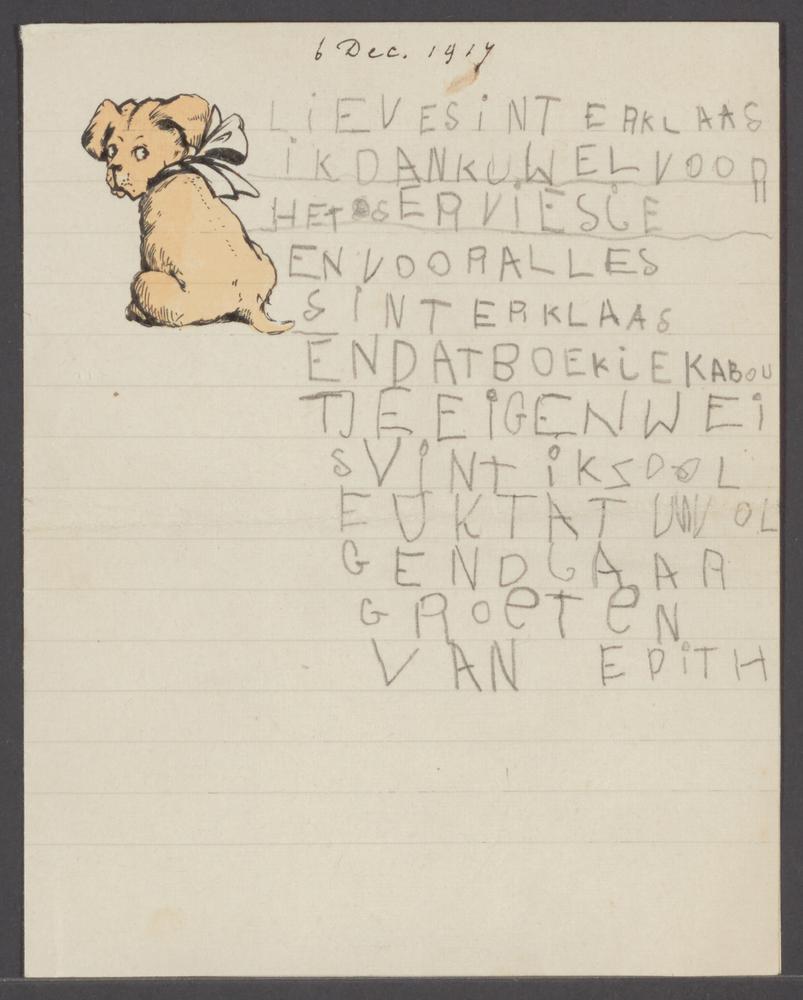 6 Dec. 1917
LIEVE SINTERKLAAS
IK DANK U WEL VOOR
HET SERVIESJE
EN VOOR ALLES
SINTERKLAAS
EN DAT BOEKIE KABOU
TJE EIGENWEI
S VINT IK ZOO L
EUK TAT U VOL
GEND JAAR
GROETEN
VAN EDITH